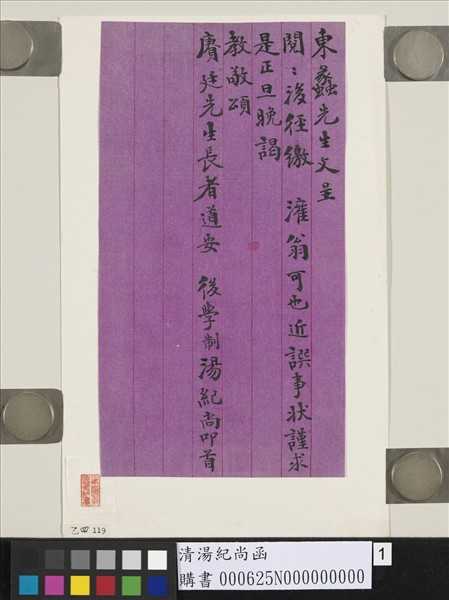 東蠡先生文呈
閱〻後徑繳 灌翁可也近譔事狀謹求
是正旦晚謁
教敬頌
賡廷先生長者道安 後學制湯紀尚叩首
乙.四 119
清湯紀尚函
購書 000625N000000000
1